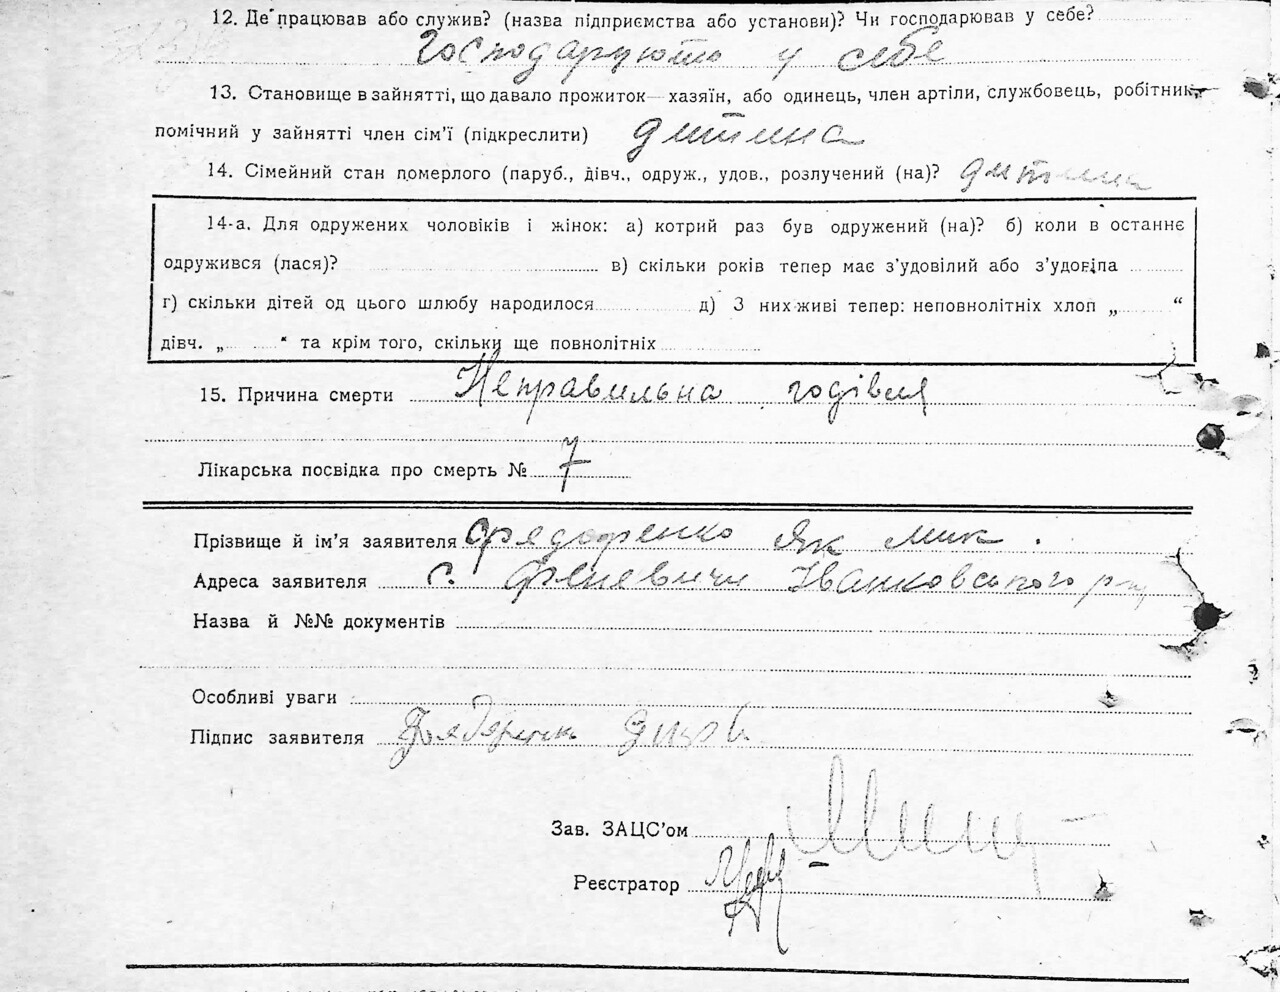 12. Де працював або служив? (назва підприємства або установи)? Чи господарював у себе?
Господарують у себе
13. Становище в зайнятті, що давало прожиток—хазяїн, або одинець, член артіли, службовець, робітник,
помічний у зайнятті член сім’ї (підкреслити) дитина
14. Сімейний стан померлого (паруб., дівч., одруж., удов., розлучений (на)? дитина
14-а. Для одружених чоловіків і жінок: а) котрий раз був одружений (на)? б) коли в останнє
одружився (лася)? в) скільки років тепер має з’удовілий або з’удовіла
г) скільки дітей од цього шлюбу народилося д) З них живі тепер: неповнолітніх хлоп „ “
дівч. „ “ та крім того, скільки ще повнолітніх
15. Причина смерти Неправильна годівля
Лікарська посвідка про смерть № 7
Прізвище й ім’я заявителя Фядоренко Як Мик.
Адреса заявителя с. Феневичи Іванковського р-ну
Назва й №№ документів
Особливі уваги
Підпис заявителя
Зав. ЗАЦС’ом
Реєстратор